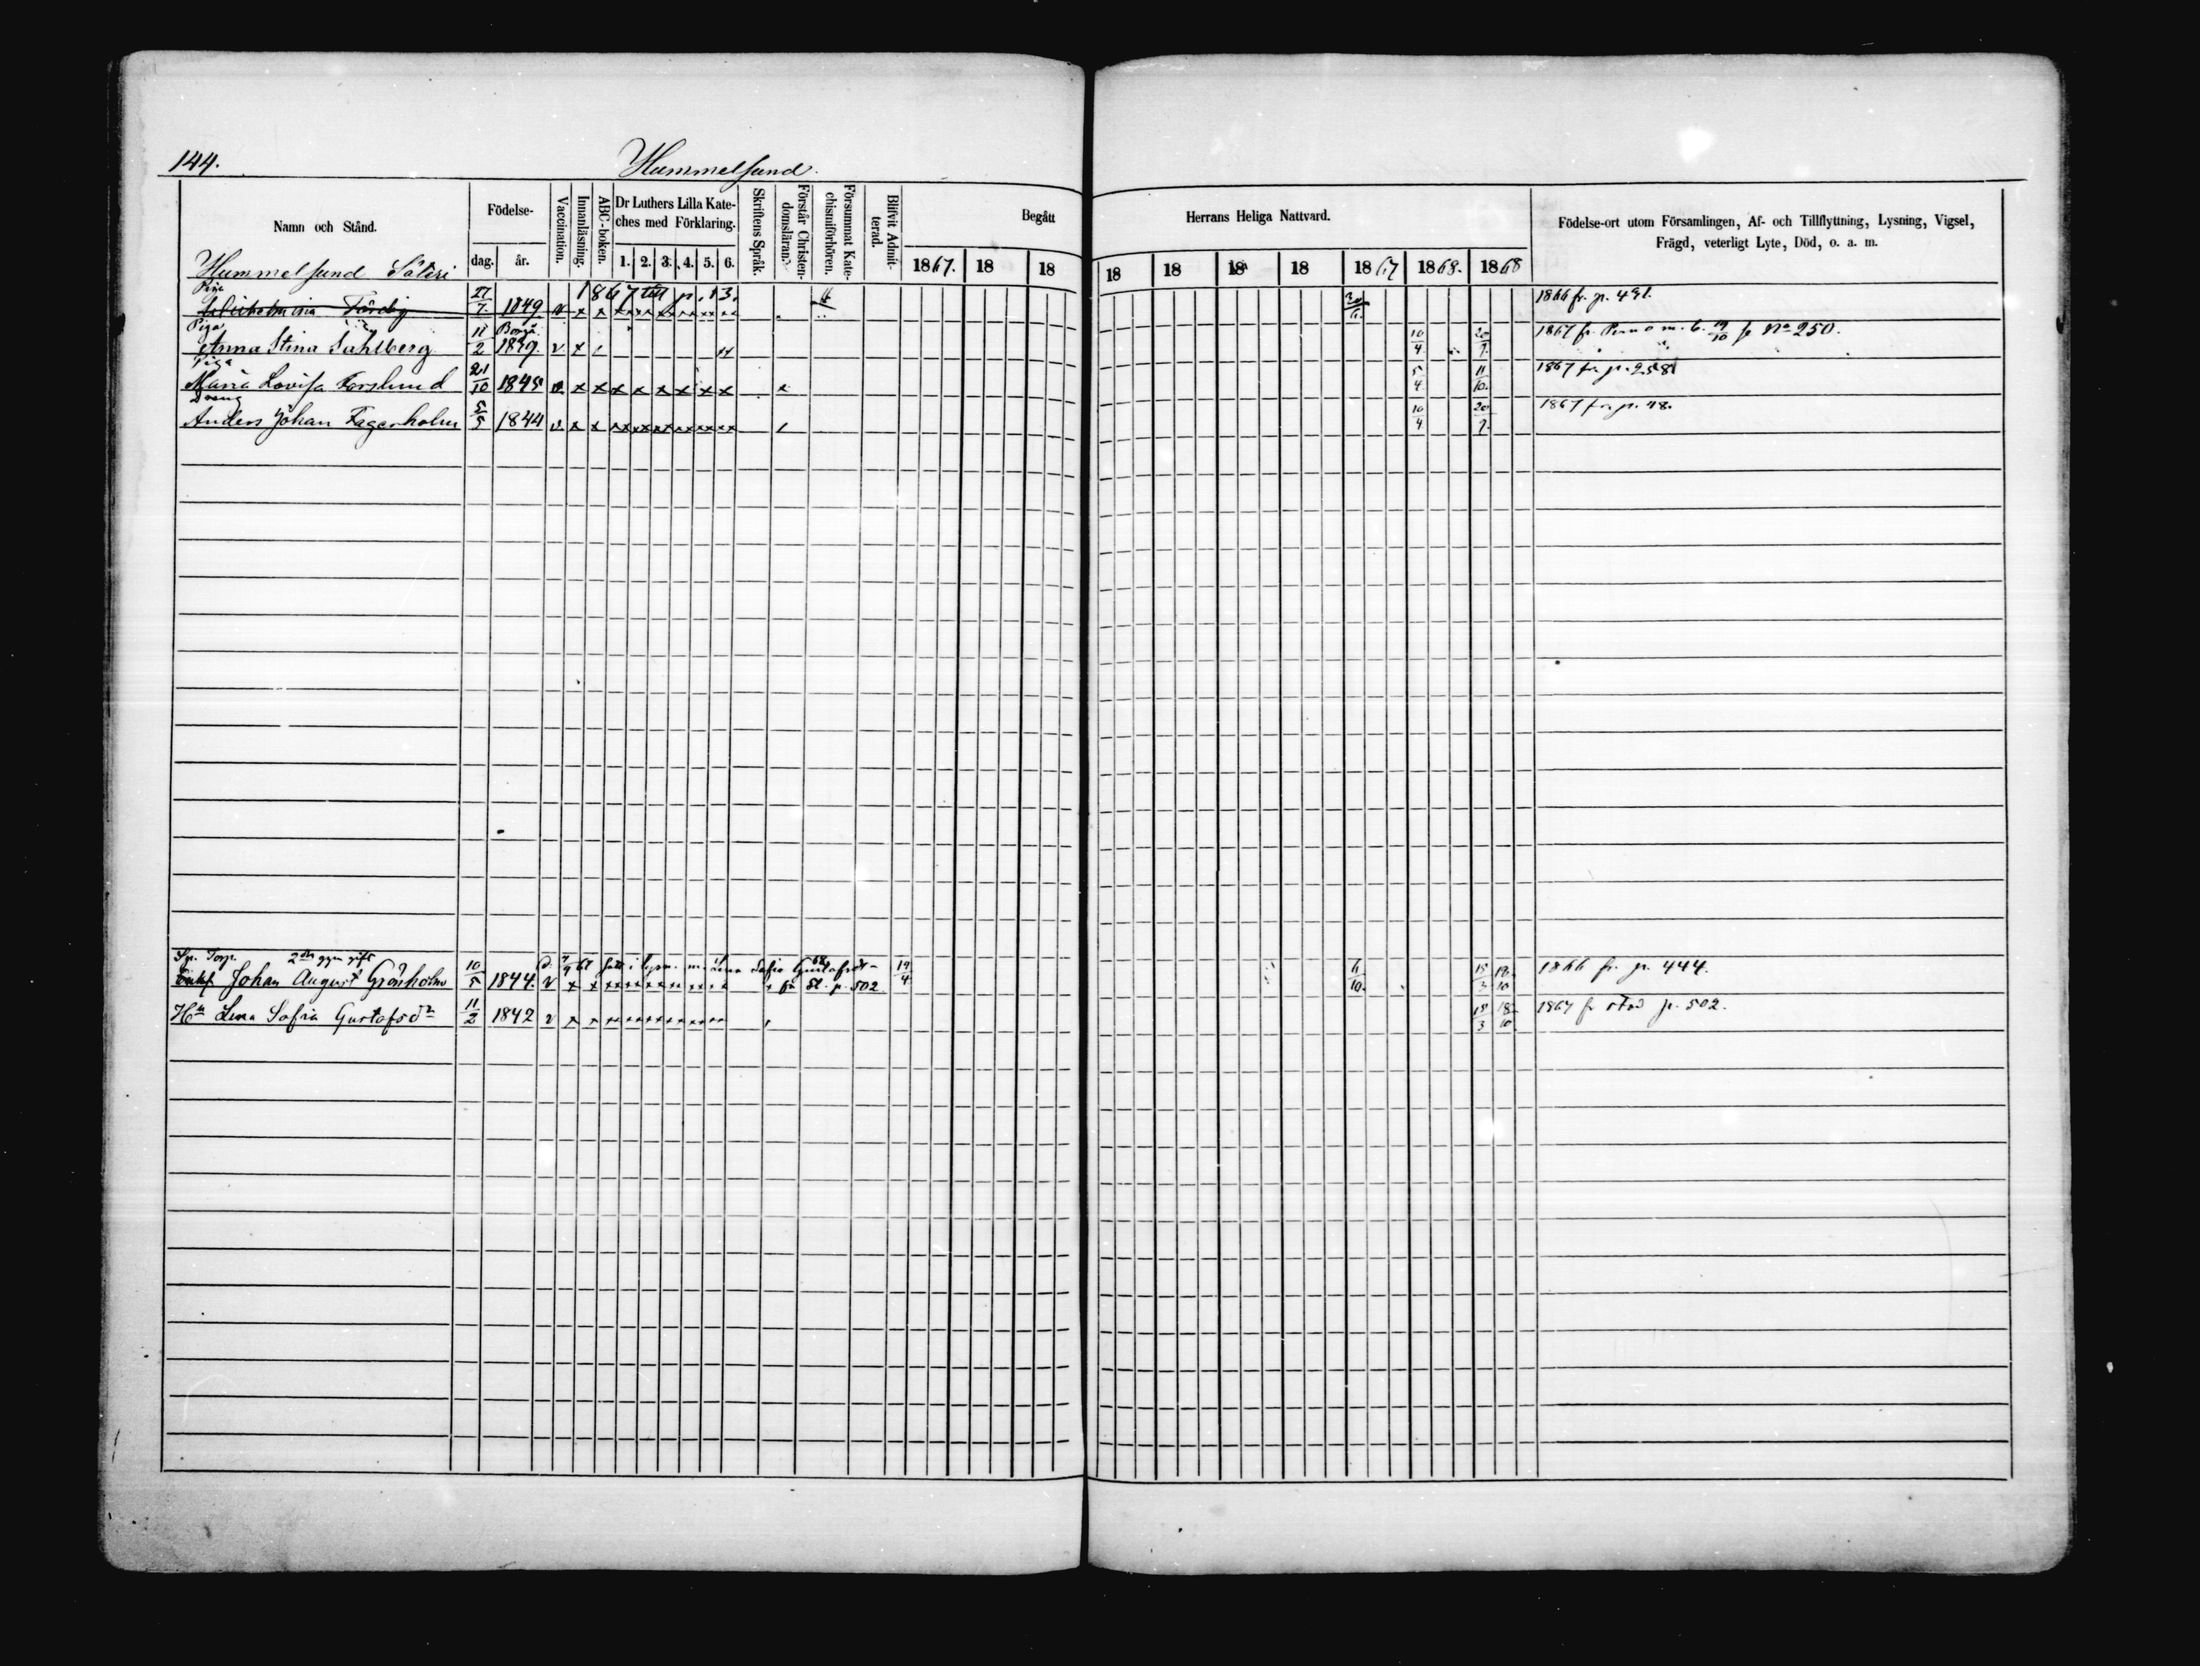 144.
Hummelsund.
Namn och Stånd.
Födelse-
dag. år.
Vaccination.
Innanläsning.
ABC-boken.
Dr Luthers Lilla Kate-
ches med Förklaring.
1. 2. 3. 4. 5. 6.
Skriftens Språk.
Förstår Christen-
domsläran?
Försummat Kate-
chismiförhören.
Blifvit Admit-
terad.
Begått
1867. 18 18
Herrans Heliga Nattvard.
18 18 18 18 1867 1868. 1868
Födelse-ort utom Församlingen, Af- och Tillflyttning, Lysning, Vigsel,
Frägd, veterligt Lyte, Död, o. a. m.
Hummelsund Säteri
Piga 27/7 1849 v 1867 till p. 13. 1866 fr. p. 491.
Piga Borgå
Anna Stina Sahlberg 11/2 1849. v x 10/4 20/9. 1867 fr. Perno m. b. 19/10 No 250.
Piga
Maria Lovisa Forslund 21/10 1845 v x x x x x x x x 5/4 11/10. 1867 fr. p. 258
Dräng
Anders Johan Fagerholm 5/5 1844 v x x xx xx xx xx xx xx 10/4 20/9. 1867 fr. p. 48.
Sp. Torp. 2dra ggn gift
Enkl Johan August Grönholm 10/5 1844. v x x Lena Sofia Gustafsdr p. 502 19/4 6/10. 15/3 18/10 1866 fr. p. 444.
Hu Lena Sofia Gustafsdr 11/2 1842 v 15/3 18/10 1867 fr p. 502.